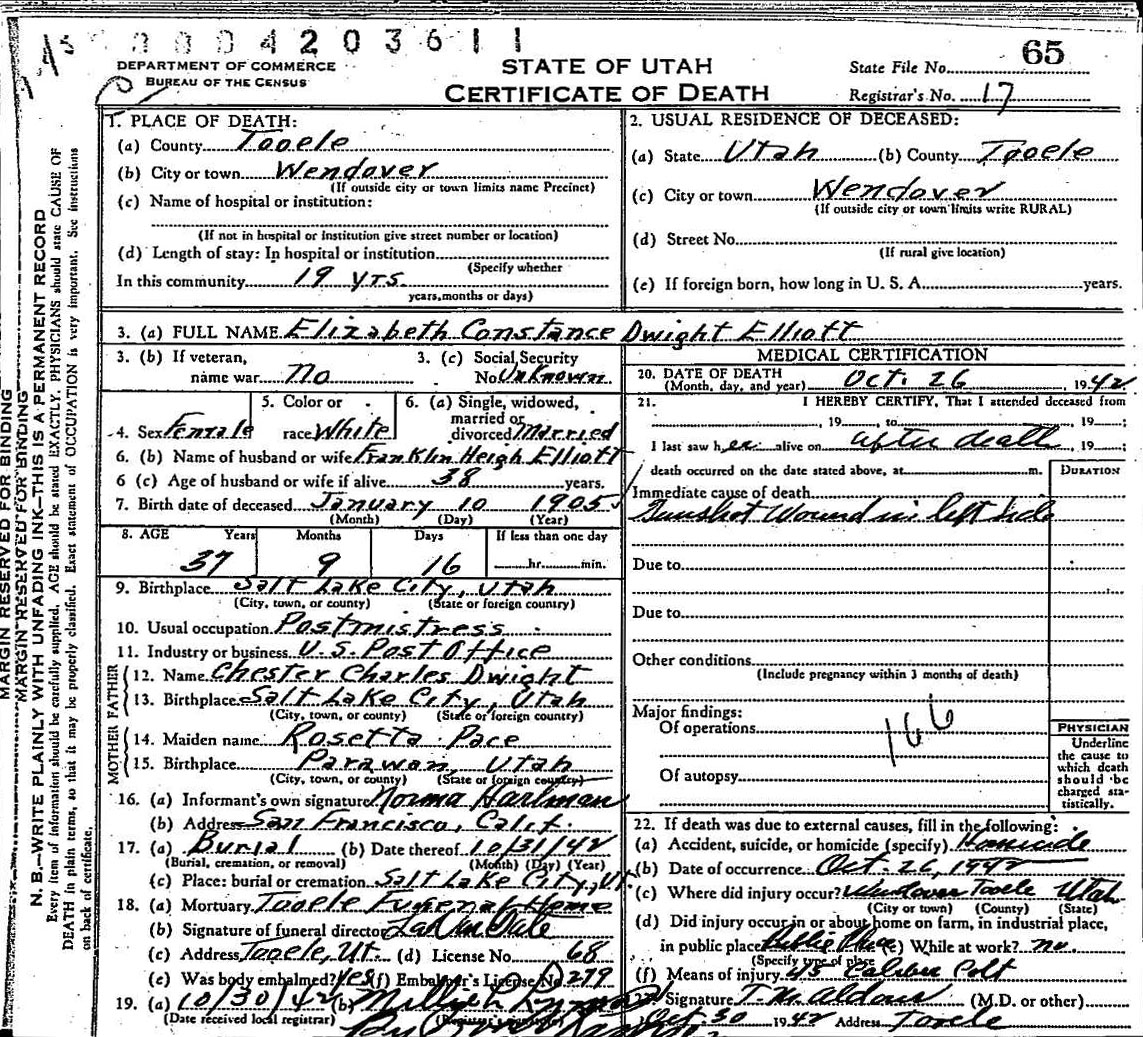 0004203611
DEPARTMENT OF COMMERCE
BUREAU OF THE CENSUS
STATE OF UTAH
CERTIFICATE OF DEATH
State File No. 65
Registrar's No. 17
MARGIN RESERVED FOR BINDING
MARGIN RESERVED FOR BINDING
N. B.—WRITE PLAINLY WITH UNFADING INK—THIS IS A PERMANENT RECORD
Every item of information should be carefully supplied. AGE should be stated EXACTLY. PHYSICIANS should state CAUSE OF
DEATH in plain terms, so that it may be properly classified. Exact statement of OCCUPATION is very important. See instructions
on back of certificate.
1. PLACE OF DEATH:
(a) County Tooele
(b) City or town Wendover
(If outside city or town limits name Precinct)
(c) Name of hospital or institution:
(If not in hospital or institution give street number or location)
(d) Length of stay: In hospital or institution
(Specify whether
In this community 19 yrs.
years, months or days)
2. USUAL RESIDENCE OF DECEASED:
(a) State Utah (b) County Tooele
(c) City or town Wendover
(If outside city or town limits write RURAL)
(d) Street No.
(If rural give location)
(e) If foreign born, how long in U. S. A. years.
3. (a) FULL NAME Elizabeth Constance Dwight Elliott
3. (b) If veteran,
name war no
3. (c) Social Security
No. Unknown
4. Sex Female
5. Color or
race White
6. (a) Single, widowed,
married or
divorced Married
6. (b) Name of husband or wife Franklin Heigh Elliott
6 (c) Age of husband or wife if alive 38 years.
7. Birth date of deceased January 10 1905
(Month) (Day) (Year)
8. AGE Years Months Days If less than one day
37 9 16 hr. min.
9. Birthplace Salt Lake City, Utah
(City, town, or county) (State or foreign country)
10. Usual occupation Postmistress
11. Industry or business U.S. Post Office
FATHER
12. Name Chester Charles Dwight
13. Birthplace Salt Lake City, Utah
(City, town, or county) (State or foreign country)
MOTHER
14. Maiden name Rosetta Pace
15. Birthplace Parawan, Utah
(City, town, or county) (State or foreign country)
16. (a) Informant's own signature Norma Harlman
(b) Address San Francisco, Calif.
17. (a) Burial (b) Date thereof 10/31/42
(Burial, cremation, or removal) (Month) (Day) (Year)
(c) Place: burial or cremation Salt Lake City, Ut
18. (a) Mortuary Tooele Funeral Home
(b) Signature of funeral director
(c) Address Tooele, Ut. (d) License No. 68
(e) Was body embalmed? Yes (f) Embalmer's License No 279
19. (a) 10/30/42 (b)
(Date received local registrar) (Registrar's signature)
By
MEDICAL CERTIFICATION
20. DATE OF DEATH
(Month, day, and year) Oct. 26, 1942
21. I HEREBY CERTIFY, That I attended deceased from
, 19 , to , 19 ;
I last saw her alive on after death, 19 ;
death occurred on the date stated above, at m.
DURATION
Immediate cause of death
Gunshot Wound in left side
Due to
Due to
Other conditions
(Include pregnancy within 3 months of death)
Major findings:
Of operations
166
Of autopsy
PHYSICIAN
Underline
the cause to
which death
should be
charged sta-
tistically.
22. If death was due to external causes, fill in the following:
(a) Accident, suicide, or homicide (specify) Homicide
(b) Date of occurrence Oct. 26, 1942
(c) Where did injury occur? Windover Tooele Utah
(City or town) (County) (State)
(d) Did injury occur in or about home on farm, in industrial place,
in public place Public Place (e) While at work? no.
(Specify type of place)
(f) Means of injury 45 Caliber Colt
23. Signature (M.D. or other)
Oct. 30 1942 Address Tooele